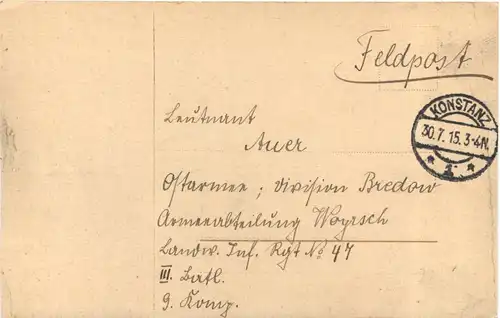 Feldpost
KONSTANZ
30.7.15.3-4N.
* 1. *
Leutnant
Auer
Ostarmee; Division Bredow
Armeeabteilung Woyrsch
Landw. Inf. Rgt No 47
III. Batl.
9. Komp.